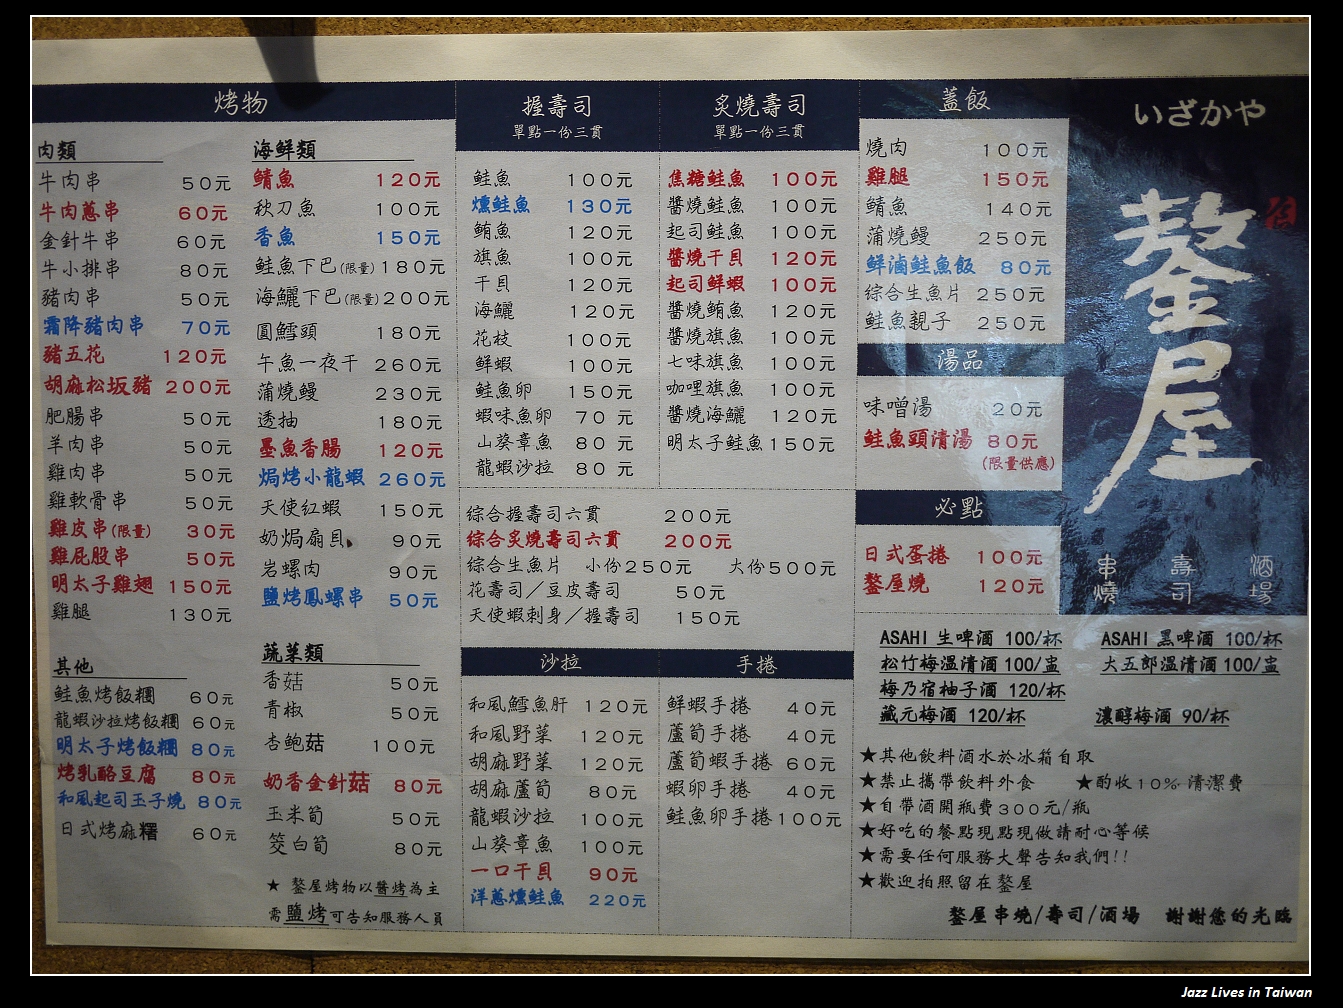 烤物
肉類
牛肉串 50元
牛肉蔥串 60元
金針牛串 60元
牛小排串 80元
豬肉串 50元
霜降豬肉串 70元
豬五花 120元
胡麻松坂豬 200元
肥腸串 50元
羊肉串 50元
雞肉串 50元
雞軟骨串 50元
雞皮串(限量) 30元
雞屁股串 50元
明太子雞翅 150元
雞腿 130元
其他
鮭魚烤飯糰 60元
龍蝦沙拉烤飯糰 60元
明太子烤飯糰 80元
烤乳酪豆腐 80元
和風起司玉子燒 80元
日式烤麻糬 60元
海鮮類
鯖魚 120元
秋刀魚 100元
香魚 150元
鮭魚下巴(限量) 180元
海鱺下巴(限量) 200元
圓鱈頭 180元
午魚一夜干 260元
蒲燒鰻 230元
透抽 180元
墨魚香腸 120元
焗烤小龍蝦 260元
天使紅蝦 150元
奶焗扇貝 90元
岩螺肉 90元
鹽烤鳳螺串 50元
蔬菜類
香菇 50元
青椒 50元
杏鮑菇 100元
奶香金針菇 80元
玉米筍 50元
筊白筍 80元
★ 鏊屋烤物以醬烤為主
需鹽烤可告知服務人員
握壽司
單點一份三貫
鮭魚 100元
燻鮭魚 130元
鮪魚 120元
旗魚 100元
干貝 120元
海鱺 120元
花枝 100元
鮮蝦 100元
鮭魚卵 150元
蝦味魚卵 70 元
山葵章魚 80 元
龍蝦沙拉 80 元
炙燒壽司
單點一份三貫
焦糖鮭魚 100元
醬燒鮭魚 100元
起司鮭魚 100元
醬燒干貝 120元
起司鮮蝦 100元
醬燒鮪魚 120元
醬燒旗魚 100元
七味旗魚 100元
咖哩旗魚 100元
醬燒海鱺 120元
明太子鮭魚 150元
綜合握壽司六貫 200元
綜合炙燒壽司六貫 200元
綜合生魚片 小份250元 大份500元
花壽司／豆皮壽司 50元
天使蝦刺身／握壽司 150元
沙拉
和風鱈魚肝 120元
和風野菜 120元
胡麻野菜 120元
胡麻蘆筍 80元
龍蝦沙拉 100元
山葵章魚 100元
一口干貝 90元
洋蔥燻鮭魚 220元
手捲
鮮蝦手捲 40元
蘆筍手捲 40元
蘆筍蝦手捲 60元
蝦卵手捲 40元
鮭魚卵手捲 100元
蓋飯
燒肉 100元
雞腿 150元
鯖魚 140元
蒲燒鰻 250元
鮮滷鮭魚飯 80元
綜合生魚片 250元
鮭魚親子 250元
湯品
味噌湯 20元
鮭魚頭清湯 80元
(限量供應)
必點
日式蛋捲 100元
鏊屋燒 120元
いざかや
鏊屋
串燒 壽司 酒場
ASAHI 生啤酒 100/杯 ASAHI 黑啤酒 100/杯
松竹梅溫清酒 100/盅 大五郎溫清酒 100/盅
梅乃宿柚子酒 120/杯
藏元梅酒 120/杯 濃醇梅酒 90/杯
★其他飲料酒水於冰箱自取
★禁止攜帶飲料外食 ★酌收10% 清潔費
★自帶酒開瓶費300元/瓶
★好吃的餐點現點現做請耐心等候
★需要任何服務大聲告知我們!!
★歡迎拍照留在鏊屋
鏊屋串燒/壽司/酒場 謝謝您的光臨
Jazz Lives in Taiwan